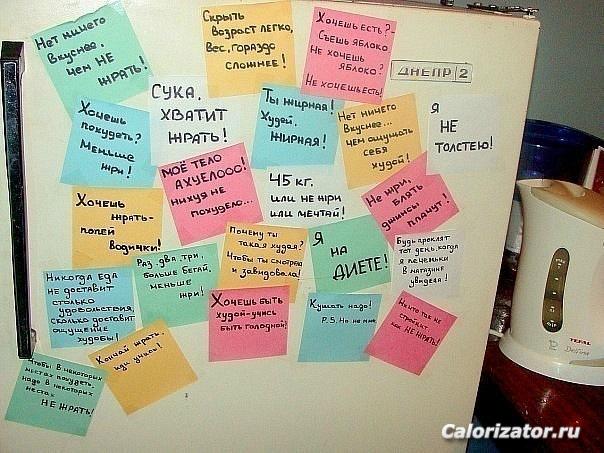 Нет ничего
вкуснее,
чем НЕ
ЖРАТЬ!
Скрыть
возраст легко,
Вес, гораздо
сложнее!
Хочешь есть? -
Съешь яблоко
Не хочешь
яблоко?
Не хочешь есть!
ДНЕПР 2
Хочешь
похудеть?
Меньше
жри!
СУКА,
ХВАТИТ
ЖРАТЬ!
Ты жирная!
Худей,
ЖИРНАЯ!
Нет ничего
Вкуснее...
чем ощущать
себя
худой!
Я
НЕ
ТОЛСТЕЮ!
МОЁ ТЕЛО
АХУЕЛООО!
нихуя не
похудело...
45 кг.
или НЕ ЖРИ
или МЕЧТАЙ!
Не жри,
БЛЯТЬ
джинсы
плачут!
Хочешь
жрать-
попей
водички!
Почему ты
такая худая?
Чтобы ты смотрела
и завидовала!
Я
НА
ДИЕТЕ!
Будь проклят
тот день, когда
я печеньки
в магазине
увидела!
Никогда ЕДА
НЕ ДОСТАВИТ
столько
удовольствия,
сколько доставит
ощущение
худобы!
Раз, два, три,
больше бегай,
меньше
жри!
Хочешь быть
худой - учись
быть голодной!
Кушать надо!
P.S. Но не мне.
Никто так не
стройнит
как НЕ ЖРАТЬ!
Кончай жрать,
иди учись!
Чтобы в некоторых
местах похудеть,
надо в некоторых
местах
НЕ ЖРАТЬ!
TEFAL
Delfini
Calorizator.ru